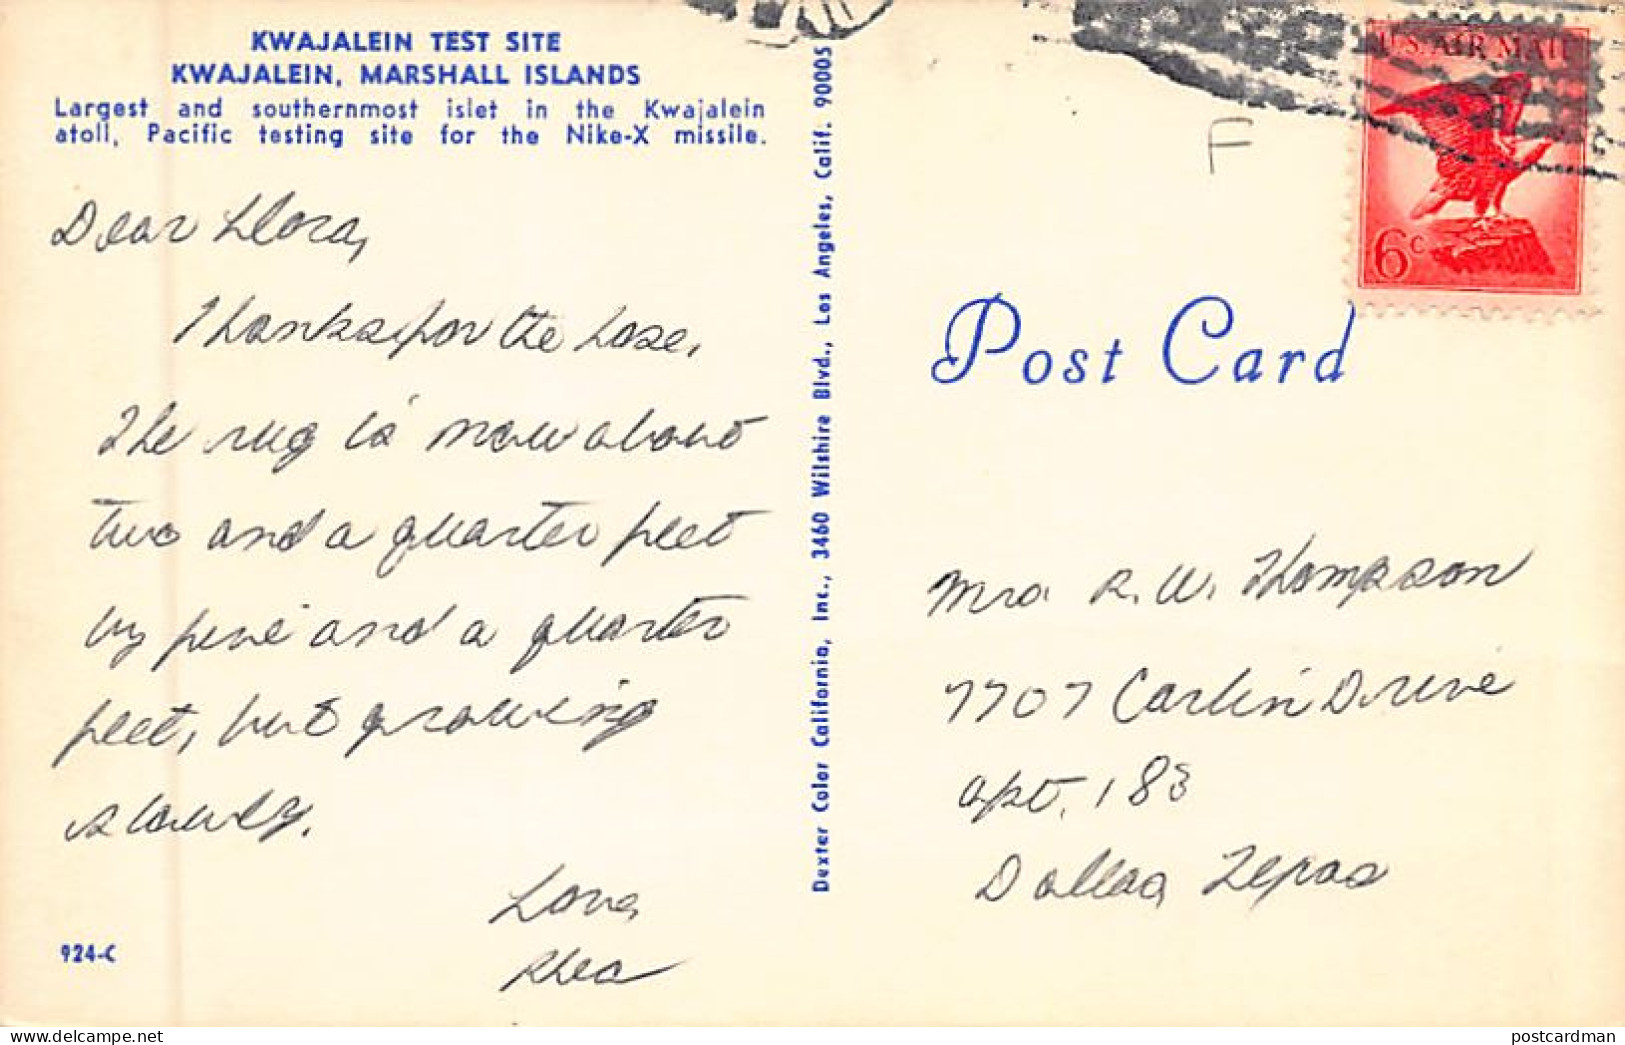 KWAJALEIN TEST SITE
KWAJALEIN, MARSHALL ISLANDS
Largest and southernmost islet in the Kwajalein
atoll, Pacific testing site for the Nike-X missile.
Dear Llora,
Thanks for the hose.
The rug is now about
two and a quarter feet
by five and a quarter
feet, but growing
slowly.
Love,
Rhea
924-C
Dexter Color California, Inc., 3460 Wilshire Blvd., Los Angeles, Calif. 90005
F
U.S. AIR MAIL
6c
Post Card
Mrs. R. W. Thompson
7707 Carlin Drive
apt. 183
Dallas, Texas
delcampe.net
postcardman